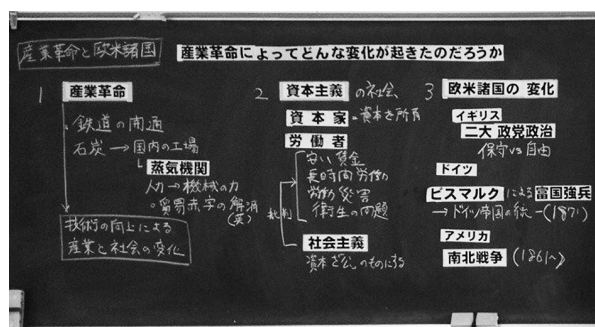 産業革命と欧米諸国
産業革命によってどんな変化が起きたのだろうか
1 産業革命
・鉄道の開通
石炭→国内の工場
蒸気機関
人力→機械の力
・貿易赤字の解消
(英)
技術の向上による
産業と社会の変化
2 資本主義の社会
資本家=資本を所有
労働者
安い賃金
長時間労働
労働災害
衛生の問題
批判
社会主義
資本を公のものにする
3 欧米諸国の変化
イギリス
二大政党政治
保守vs自由
ドイツ
ビスマルクによる富国強兵
→ドイツ帝国の統一(1871)
アメリカ
南北戦争(1861〜)